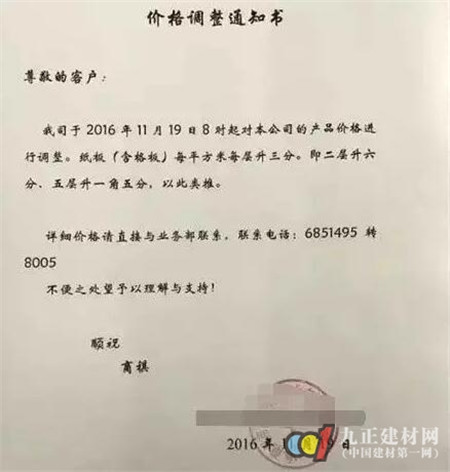 价格调整通知书
尊敬的客户：
我司于 2016 年 11 月 19 日 8 时起对本公司的产品价格进
行调整。纸板（含格板）每平方米每层升三分。即二层升六
分、五层升一角五分，以此类推。
详细价格请直接与业务部联系，联系电话：6851495 转
8005
不便之处望予以理解与支持！
顺祝
商祺
2016 年 11 月 19 日
九正建材网
（中国建材第一网）